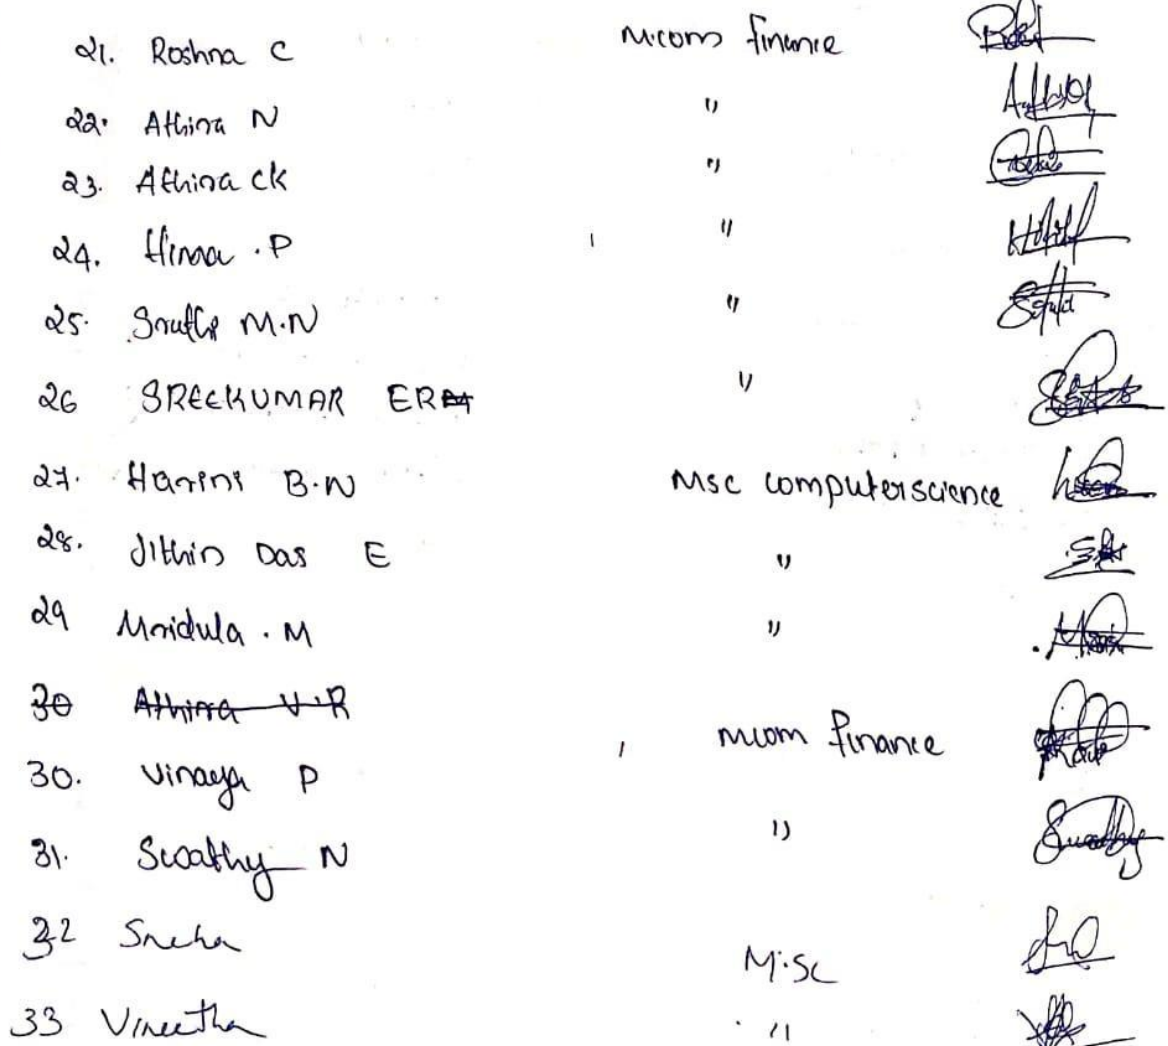 21. Roshna C M.com finance
22. Athira N "
23. Athira CK "
24. Hima . P "
25. Sruthi M.N "
26 SREEKUMAR ER "
27. Harini B.N Msc computerscience
28. Jithin Das E "
29 Mridula . M "
30 Athira V.R
30. Vinaya P Mcom finance
31. Swathy N " Swathy
32 Sneha M.Sc
33 Vineetha "